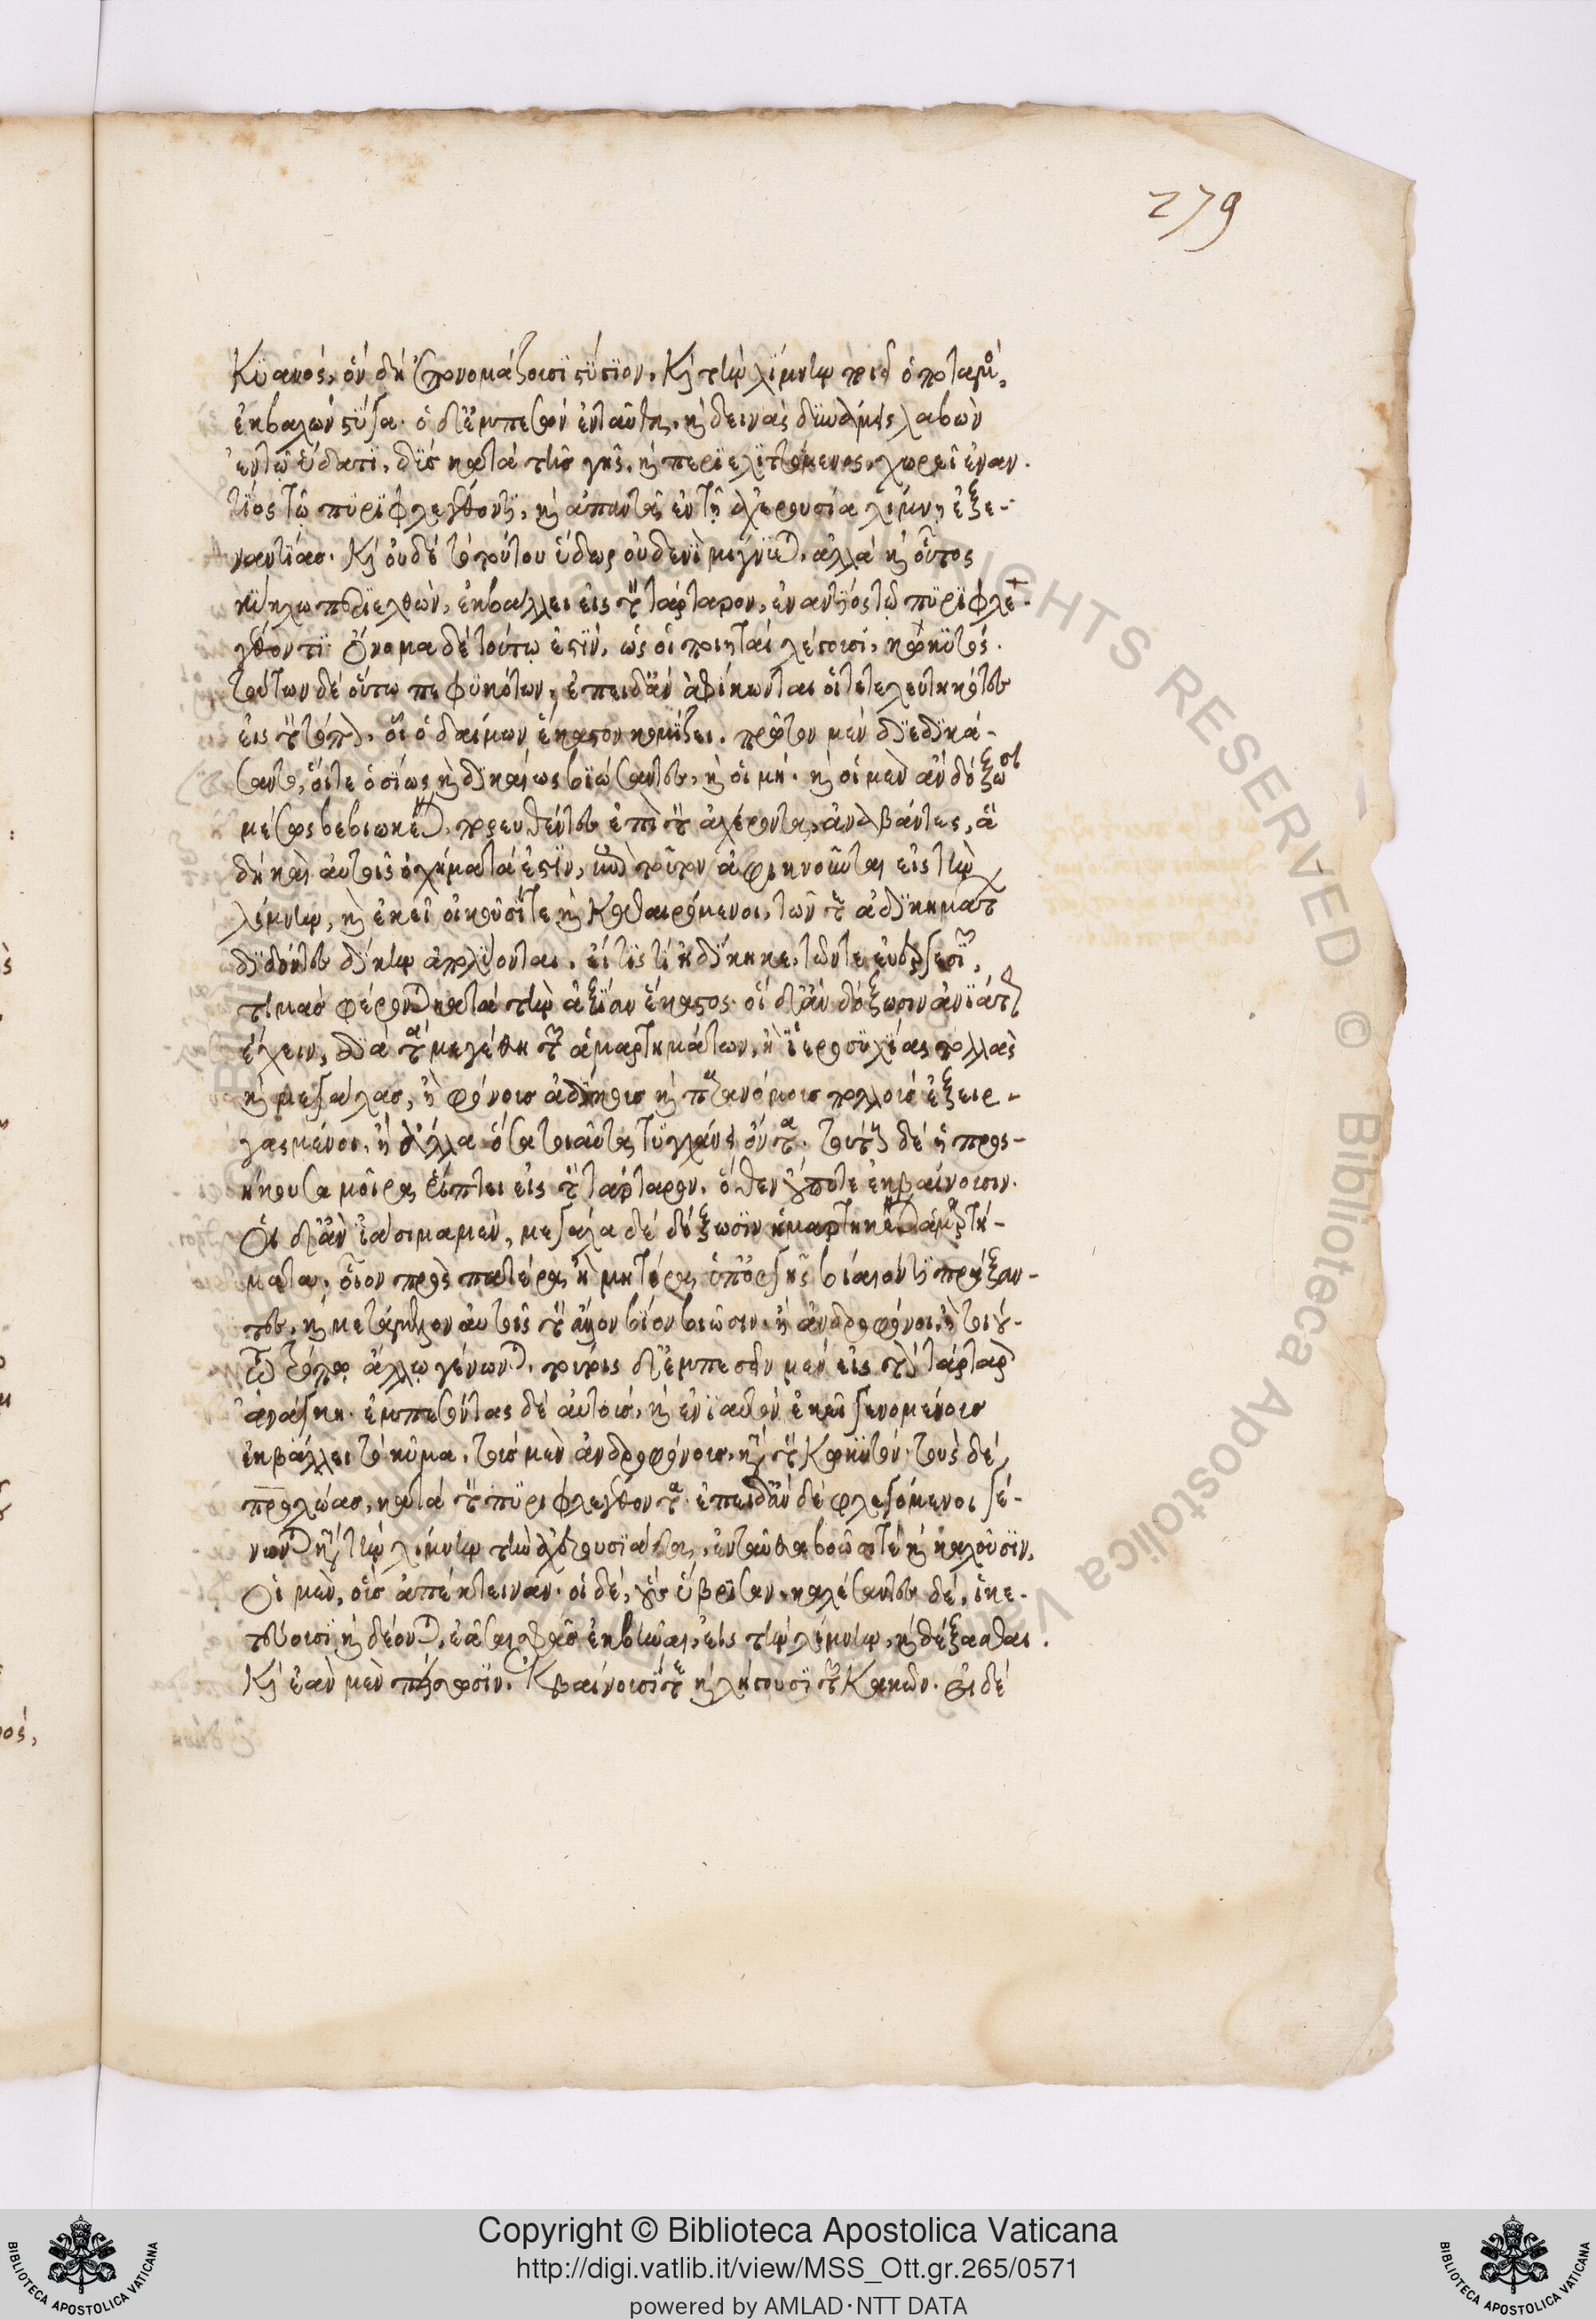 279
κυανός, ὃν δὴ ἐπονομάζουσι στύγιον. καὶ τὴν λίμνην ποιεῖ ὁ ποταμὸς,
ἐκβαλὼν στύγα. ὁ δ' ἐμπεσὼν ἐνταῦθα, καὶ δεινὰς δυνάμεις λαβὼν
ἐν τῷ ὕδατι, δὺς κατὰ τῆς γῆς, καὶ περιελιττόμενος, χωρεῖ ἐναν-
τίος τῷ πυριφλεγέθοντι, καὶ ἀπαντᾶ ἐν τῇ ἀχερουσία λίμνῃ ἐξε-
ναντίας. καὶ οὐδὲ τὸ τούτου ὕδωρ οὐδενὶ μίγνυται, ἀλλὰ καὶ οὗτος
κύκλω περιελθὼν, ἐκβάλλει εἰς τὸν τάρταρον, ἐναντίος τῷ πυριφλε-
γέθοντι. ὄνομα δὲ τούτω ἐστὶν, ὡς οἱ ποιηταὶ λέγουσι, κωκυτός.
τούτων δὲ οὕτω πεφυκότων, ἐπειδὰν ἀφίκωνται οἱ τετελευτηκότες
εἰς τὸν τόπον, οἷ ὁ δαίμων ἕκαστον κομίζει. πρῶτον μὲν διεδικά-
σαντο, οἵ τε ὁσίως καὶ δικαίως βιώσαντες, καὶ οἱ μή. καὶ οἱ μὲν ἂν δόξωσι
μέσως βεβιωκέναι, πορευθέντες ἐπὶ τὸν ἀχέροντα, ἀναβάντες, ἃ
δὴ καὶ αὐτοῖς ὀχήματά ἐστιν, ἐπὶ τούτων ἀφικνοῦνται εἰς τὴν
λίμνην, καὶ ἐκεῖ οἰκοῦσί τε καὶ καθαιρόμενοι, τῶν τε ἀδικημάτων
διδόντες δίκην ἀπολύονται, εἴ τίς τι ἠδίκηκε, τῶν τε εὐεργεσιῶν,
τιμὰς φέρονται κατὰ τὴν ἀξίαν ἕκαστος. οἳ δ' ἂν δόξωσιν ἀνιάτως
ἔχειν, διὰ τὰ μεγέθη τῶν ἁμαρτημάτων, ἢ ἱεροσυλίας πολλὰς
καὶ μεγάλας, ἢ φόνους ἀδίκους καὶ παρανόμους πολλοὺς ἐξειρ-
γασμένοι, ἢ ἄλλα ὅσα τοιαῦτα τυγχάνει ὄντα. τούτους δὲ ἡ προσ-
ήκουσα μοῖρα ῥίπτει εἰς τὸν τάρταρον, ὅθεν οὔποτε ἐκβαίνουσιν.
οἳ δ' ἂν ἰάσιμα μὲν, μεγάλα δὲ δόξωσιν ἡμαρτηκέναι ἁμαρτή-
ματα, οἷον πρὸς πατέρα ἢ μητέρα ὑπ' ὀργῆς βίαιόν τι πράξαν-
τες, καὶ μεταμέλον αὐτοῖς τὸν ἄλλον βίον βιῶσιν, ἢ ἀνδροφόνοι, τοιού-
τω τρόπω ἄλλω γένωνται. τούτους δ' ἐμπεσεῖν μὲν εἰς τὸν τάρταρον
ἀνάγκη. ἐμπεσόντας δὲ αὐτοὺς, καὶ ἐνιαυτὸν ἐκεῖ γενομένους
ἐκβάλλει τὸ κῦμα. τοὺς μὲν ἀνδροφόνους, κατὰ τὸν κωκυτόν. τοὺς δὲ
πατραλώας, κατὰ τὸν πυριφλεγέθοντα. ἐπειδὰν δὲ φλεγόμενοι γέ-
νωνται κατὰ τὴν λίμνην τὴν ἀχερουσιάδα, ἐνταῦθα βοῶσί τε καὶ καλοῦσιν,
οἱ μὲν, οὓς ἀπέκτειναν. οἱ δὲ, οὓς ὕβρισαν. καλέσαντες δὲ, ἱκε-
τεύουσι καὶ δέονται, ἐᾶσαι σφᾶς ἐκβῆναι, εἰς τὴν λίμνην, καὶ δέξασθαι.
καὶ ἐὰν μὲν πείσωσιν, ἐκβαίνουσί τε καὶ λήγουσι τῶν κακῶν. εἰ δὲ
Copyright © Biblioteca Apostolica Vaticana
http://digi.vatlib.it/view/MSS_Ott.gr.265/0571
powered by AMLAD·NTT DATA